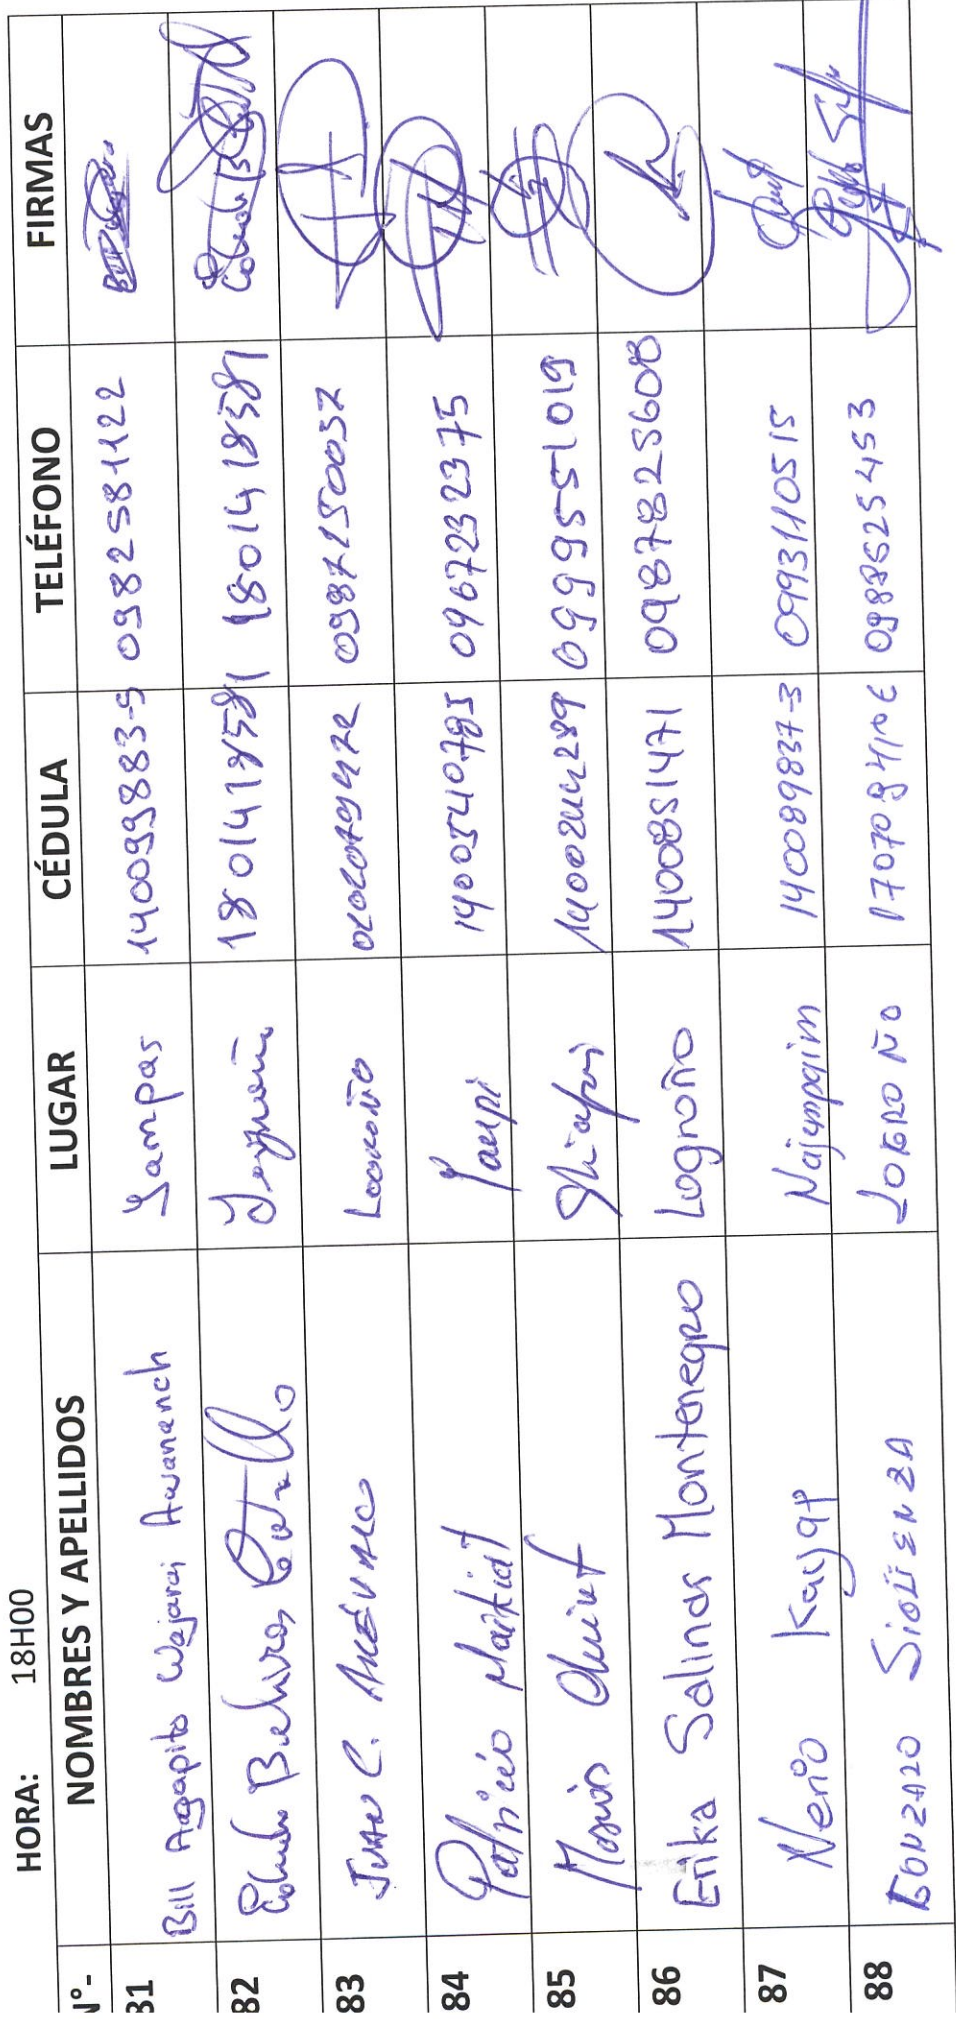 HORA: 18H00
N°.- NOMBRES Y APELLIDOS LUGAR CÉDULA TELÉFONO FIRMAS
81 Bill Agapito Wajarai Awananch Yampas 140099883-9 0982581122
82 1801418581 1801418581
83 Juan C. Arévalo Logroño 0987150037
84 Patricio Maikiat Yaupi 1400540785 0967232375
85 Shiapni 1400244289 0999551019
86 Erika Salinas Montenegro Logroño 1400851471 0987825608
87 Nerio Kayap Najempaim 140089837-3 0993110515
88 GONZALO SIGÜENZA LOGROÑO 0988625453